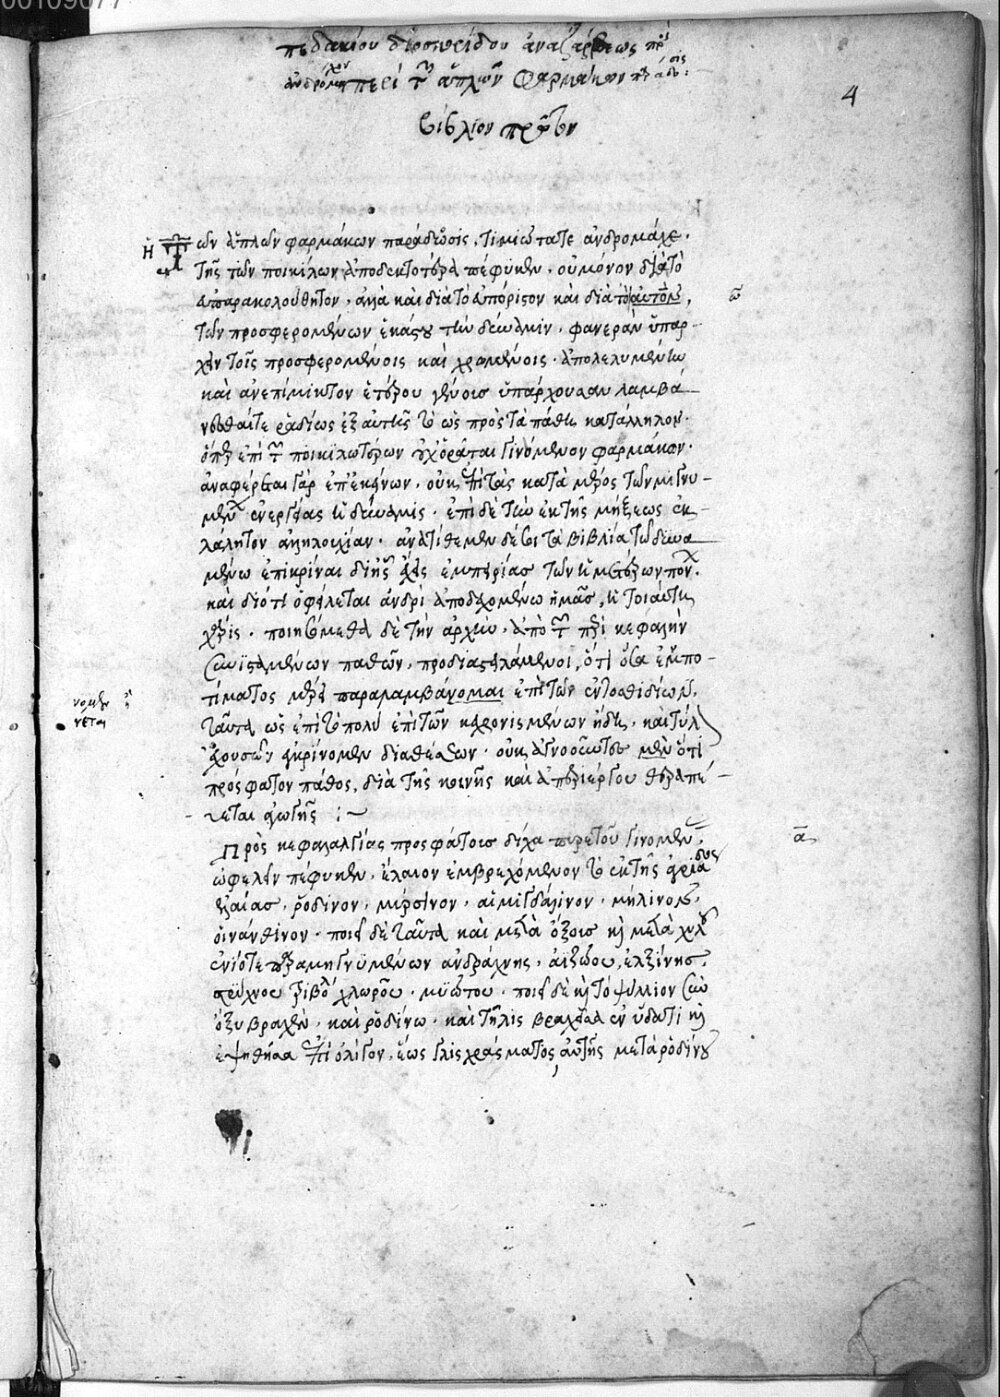 00109077
πεδακίου διοσκορίδου ἀναζαρβέως πρὸς
ἀνδρόμαχον περὶ τῶν ἁπλῶν φαρμάκων
βιβλίον πρῶτον
4
ἡ τῶν ἁπλῶν φαρμάκων παράδοσις, τιμιώτατε ἀνδρόμαχε,
τῆς τῶν ποικίλων ἀποδεκτοτέρα πέφυκεν, οὐ μόνον διὰ τὸ
ἀπαρακολούθητον, ἀλλὰ καὶ διὰ τὸ ἀπόριστον καὶ διὰ τὸ
τῶν προσφερομένων ἑκάστου τὴν δύναμιν, φανερὰν ὑπάρ-
χειν τοῖς προσφερομένοις καὶ χρωμένοις, ἀπολελυμένην
καὶ ἀνεπίμικτον ἑτέρου γένους ὑπάρχουσαν λαμβά
νεσθαί τε ῥᾳδίως ἐξ αὐτῆς τὸ ὡς πρὸς τὰ πάθη κατάλληλον,
ὅπερ ἐπὶ τῶν ποικιλωτέρων οὐχ ὁρᾶται γινόμενον φαρμάκων.
ἀναφέρεται γὰρ ἐπ' ἐκείνων, οὐκ ἐπὶ τὰς κατὰ μέρος τῶν μιγνυ-
μένων ἐνεργείας καὶ δυνάμεις, ἐπὶ δὲ τὴν ἐκ τῆς μίξεως ἐκ-
λάλητον ἀλληλουχίαν. ἀνατίθεμεν δέ σοι τὰ βιβλία τῷ δυνα
μένῳ ἐπικρῖναι δι' ἧς ἔχεις ἐμπειρίας τῶν ἡμετέρων πόνων.
καὶ διότι ὀφείλεται ἀνδρὶ ἀποδεχομένῳ ἡμᾶς, ἡ τοιαύτη
χάρις. ποιησόμεθα δὲ τὴν ἀρχὴν, ἀπὸ τῶν περὶ κεφαλὴν
συνισταμένων παθῶν, προδιαστειλάμενοι, ὅτι ὅσα ἐν ἐμπο-
τίματος μέρει παραλαμβάνομαι ἐπὶ τῶν ἐντοσθιδίων,
ταῦτα ὡς ἐπὶ τὸ πολὺ ἐπὶ τῶν κεχρονισμένων ἤδη, καὶ τύλ
ἐχουσῶν ἐκρίνομεν διαθέσεων, οὐκ ἀγνοοῦντες μὲν ὅτι
πρόσφατον πάθος, διὰ τῆς κοινῆς καὶ ἀπεριέργου θεραπεύ-
εται ἀγωγῆς :~
Πρὸς κεφαλαλγίας προσφάτους δίχα πυρετοῦ γινομένας
ὠφελεῖν πέφυκεν, ἔλαιον ἐμβρεχόμενον τὸ ἐκ τῆς ἀγρίας
ἐλαίας, ῥόδινον, μύρσινον, ἀμυγδάλινον, μήλινον,
οἰνάνθινον. ποιεῖ δὲ ταῦτα καὶ μετὰ ὄξους καὶ μετὰ χυλοῦ
ἐνίοτε παραμιγνυμένων ἀνδράχνης, ἀειζώου, ἑλξίνης,
στρύχνου, τριβόλου χλωροῦ, μυώτου. ποιεῖ δὲ καὶ τὸ ψύλλιον σὺν
ὄξει βραχὲν, καὶ ῥοδίνῳ, καὶ τῆλις βραχεῖσα ἐν ὕδατι καὶ
ἑψηθεῖσα ἐπὶ ὀλίγον, ἕως γλισχράσματος αὐτῆς μετὰ ῥοδίνου